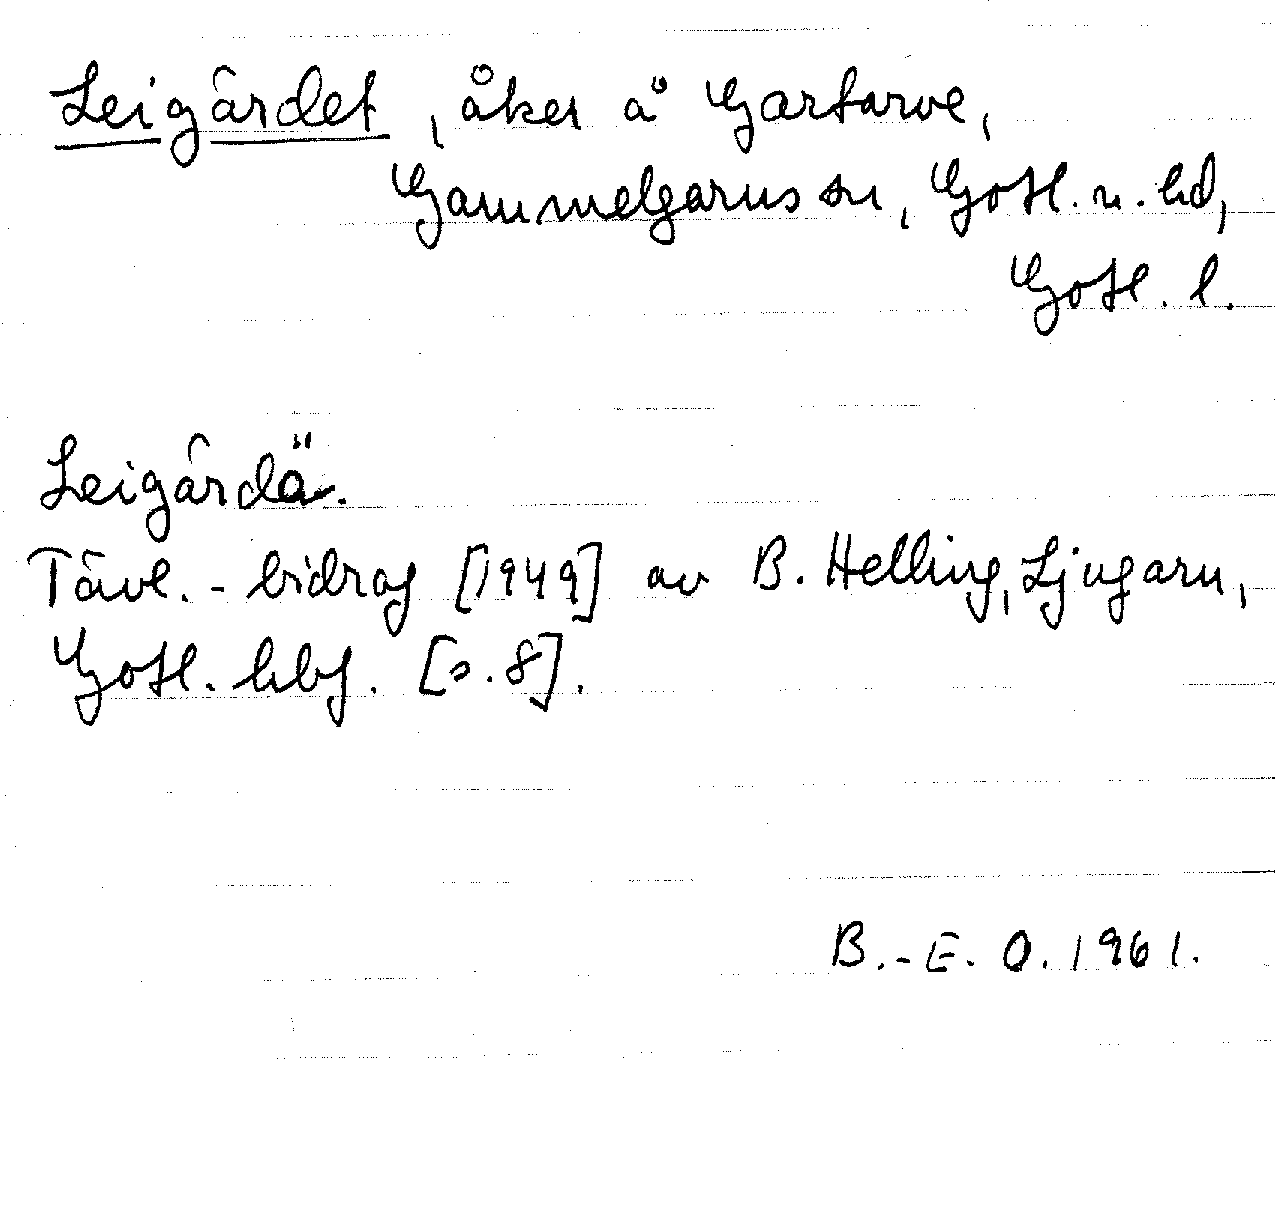 Leigärdet, åker å Gartarve,
Gammelgarns sn, Gotl. n. hd,
Gotl. l.
Leigärdä.
Tävl.-bidrag [1949] av B. Helling, Ljugarn,
Gotl. hbf. [s. 8].
B.-E. O. 1961.